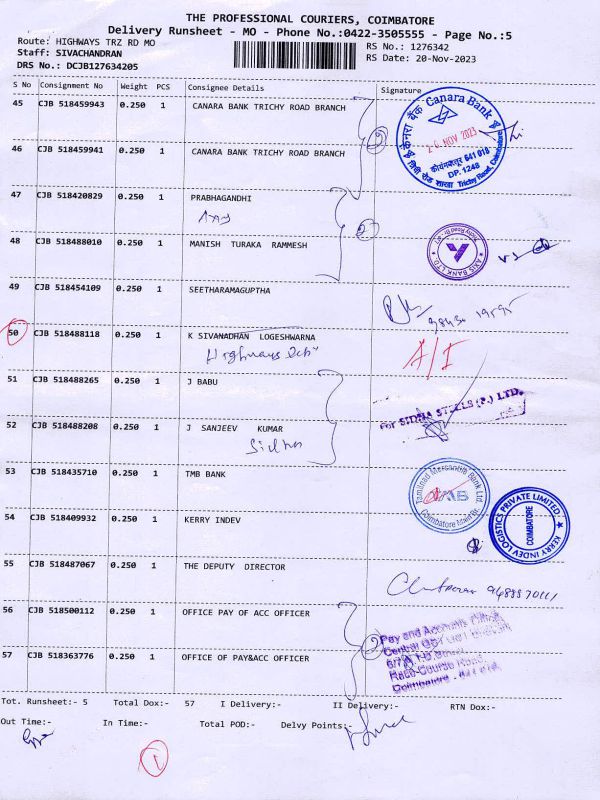 THE PROFESSIONAL COURIERS, COIMBATORE
Delivery Runsheet - MO - Phone No.:0422-3505555 - Page No.:5
Route: HIGHWAYS TRZ RD MO
RS No.: 1276342
Staff: SIVACHANDRAN
RS Date: 20-Nov-2023
DRS No.: DCJB127634205
S No Consignment No Weight PCS Consignee Details Signature
45 CJB 518459943 0.250 1 CANARA BANK TRICHY ROAD BRANCH
Canara Bank
केनरा बैंक
NOV 2023
कोयंबत्तूर 641 018
DP. 1248
Trichy Road, Coimbatore
46 CJB 518459941 0.250 1 CANARA BANK TRICHY ROAD BRANCH
2
47 CJB 518420829 0.250 1 PRABHAGANDHI
2
48 CJB 518488010 0.250 1 MANISH TURAKA RAMMESH
AXIS BANK LTD.
49 CJB 518454109 0.250 1 SEETHARAMAGUPTHA
50 CJB 518488118 0.250 1 K SIVANADHAN LOGESHWARNA
Highways
A/I
51 CJB 518488265 0.250 1 J BABU
For SIDHA STEELS (P.) LTD.
52 CJB 518488208 0.250 1 J SANJEEV KUMAR
Sidha
53 CJB 518435710 0.250 1 TMB BANK
Tamilnad Mercantile Bank Ltd
TMB
Coimbatore Main Br.
54 CJB 518409932 0.250 1 KERRY INDEV
KERRY INDEV LOGISTICS PRIVATE LIMITED
COIMBATORE
55 CJB 518487067 0.250 1 THE DEPUTY DIRECTOR
56 CJB 518500112 0.250 1 OFFICE PAY OF ACC OFFICER
2
Pay and Accounts Office
Race Course Road
Coimbatore
57 CJB 518363776 0.250 1 OFFICE OF PAY&ACC OFFICER
Tot. Runsheet:- 5 Total Dox:- 57 I Delivery:- II Delivery:- RTN Dox:-
Out Time:- In Time:- Total POD:- Delvy Points:-
1